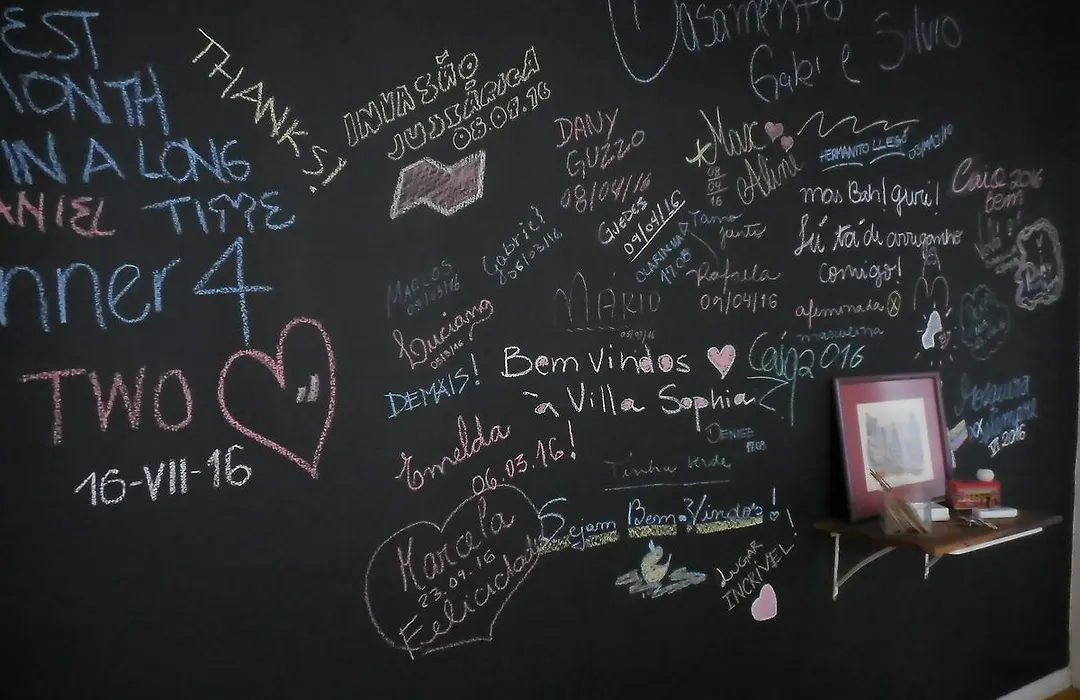 EST
MONTH
IN A LONG
ANIEL TIME
nner 4
TWO
16-VII-16
THANKS!
INVASÃO
JUSSÁRICA
08.07.16
Casamento
Gabi e Silvio
DANY
GUZZO
08/04/16
GUEDES
09/04/16
+ Max
Aline
08
04
16
HERMANITO LLEGÓ
mas Bah! guri!
Sú tá di arruganho
comigo!
afeminada
masculina
Caio 2016
bem
Gabriel
06/03/16
MARCOS
05/03/16
Luciana
Tamo
junto
CLARINHA
17.08
Rafaela
09/04/16
MÁRIO
DEMAIS!
Bem Vindos
à Villa Sophia
2016
Emelda
06.03.16!
DENISE
17.08
Tinha verde
Marcela
23.09.16
Felicidade
Sejam Bem Vindos!
LUGAR
INCRÍVEL!
VI.2016